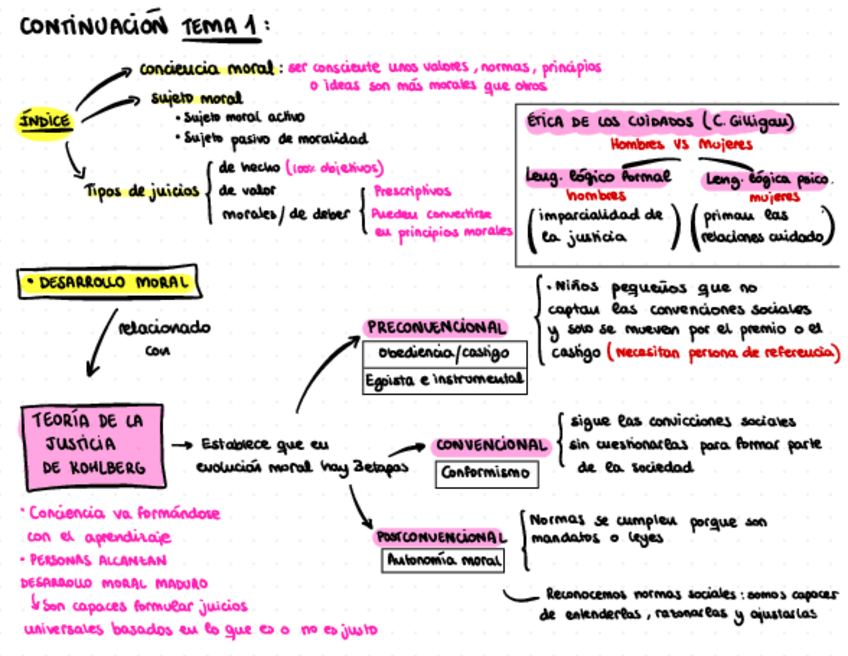 CONTINUACIÓN TEMA 1:
conciencia moral: ser consciente unos valores, normas, principios
o ideas son más morales que otros
ÍNDICE
sujeto moral
• Sujeto moral activo
• Sujeto pasivo de moralidad
Tipos de juicios
de hecho (100% objetivos)
de valor
morales / de deber
Prescriptivos
Pueden convertirse
en principios morales
ÉTICA DE LOS CUIDADOS (C. Gilligan)
Hombres VS Mujeres
Leng. Lógico Formal
hombres
(imparcialidad de
la justicia)
Leng. Lógica psico.
mujeres
(priman las
relaciones cuidado)
• DESARROLLO MORAL
relacionado
con
TEORÍA DE LA
JUSTICIA
DE KOHLBERG
→ Establece que en
evolución moral hay 3 etapas
PRECONVENCIONAL
Obediencia/castigo
Egoista e instrumental
• Niños pequeños que no
captan las convenciones sociales
y solo se mueven por el premio o el
castigo (Necesitan persona de referencia)
CONVENCIONAL
Conformismo
sigue las convicciones sociales
sin cuestionarlas para formar parte
de la sociedad
POSTCONVENCIONAL
Autonomía moral
Normas se cumplen porque son
mandatos o leyes
Reconocemos normas sociales: somos capaces
de entenderlas, razonarlas y ajustarlas
• Conciencia va formándose
con el aprendizaje
• PERSONAS ALCANZAN
DESARROLLO MORAL MADURO
↳ Son capaces formular juicios
universales basados en lo que es o no es justo